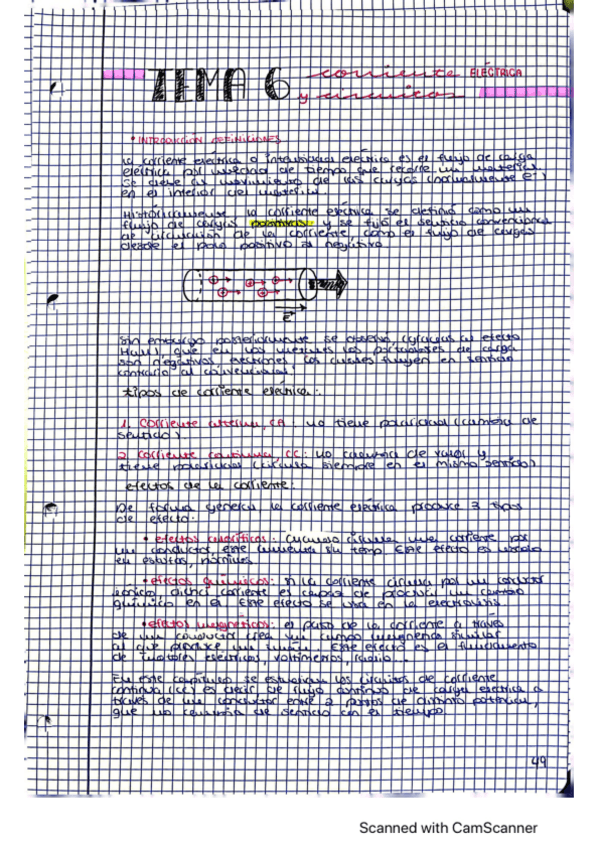 TEMA 6 corriente ELÉCTRICA
y circuitos
• INTRODUCCIÓN DEFINICIONES
La corriente eléctrica o intensidad eléctrica es el flujo de carga
eléctrica por unidad de tiempo que recorre un material.
Se debe al movimiento de las cargas (normalmente e-)
en el interior del material
Históricamente, la corriente eléctrica se definió como un
flujo de cargas positivas y se fijó el sentido convencional
de circulación de la corriente, como el flujo de cargas
desde el polo positivo al negativo
Sin embargo posteriormente se observó, (gracias al efecto
Hall) que en los metales los portadores de carga
son negativos, electrones los cuales fluyen en sentido
contrario al convencional.
tipos de corriente eléctrica:
1. Corriente alterna, CA: no tiene polaridad (cambia de
sentido)
2. Corriente continua, CC: no cambia de valor y
tiene polaridad (circula siempre en el mismo sentido)
efectos de la corriente:
De forma general la corriente eléctrica produce 3 tipos
de efecto:
• efectos caloríficos: cuando circula una corriente por
un conductor, este aumenta su temp. Este efecto es usado
en estufas, hornillos
• efectos químicos: si la corriente circula por un conductor
iónico, dicha corriente es capaz de producir un cambio
químico en él. Este efecto se usa en la electrólisis
• efectos magnéticos: el paso de la corriente a través
de un conductor crea un campo magnético similar
al que produce un imán. Este efecto es el fundamento
de motores eléctricos, voltímetros, radio...
En este capítulo se estudian los circuitos de corriente
continua (CC) es decir, de flujo continuo de carga eléctrica a
través de un conductor entre 2 puntos de distinto potencial,
que no cambia de sentido con el tiempo
49
Scanned with CamScanner